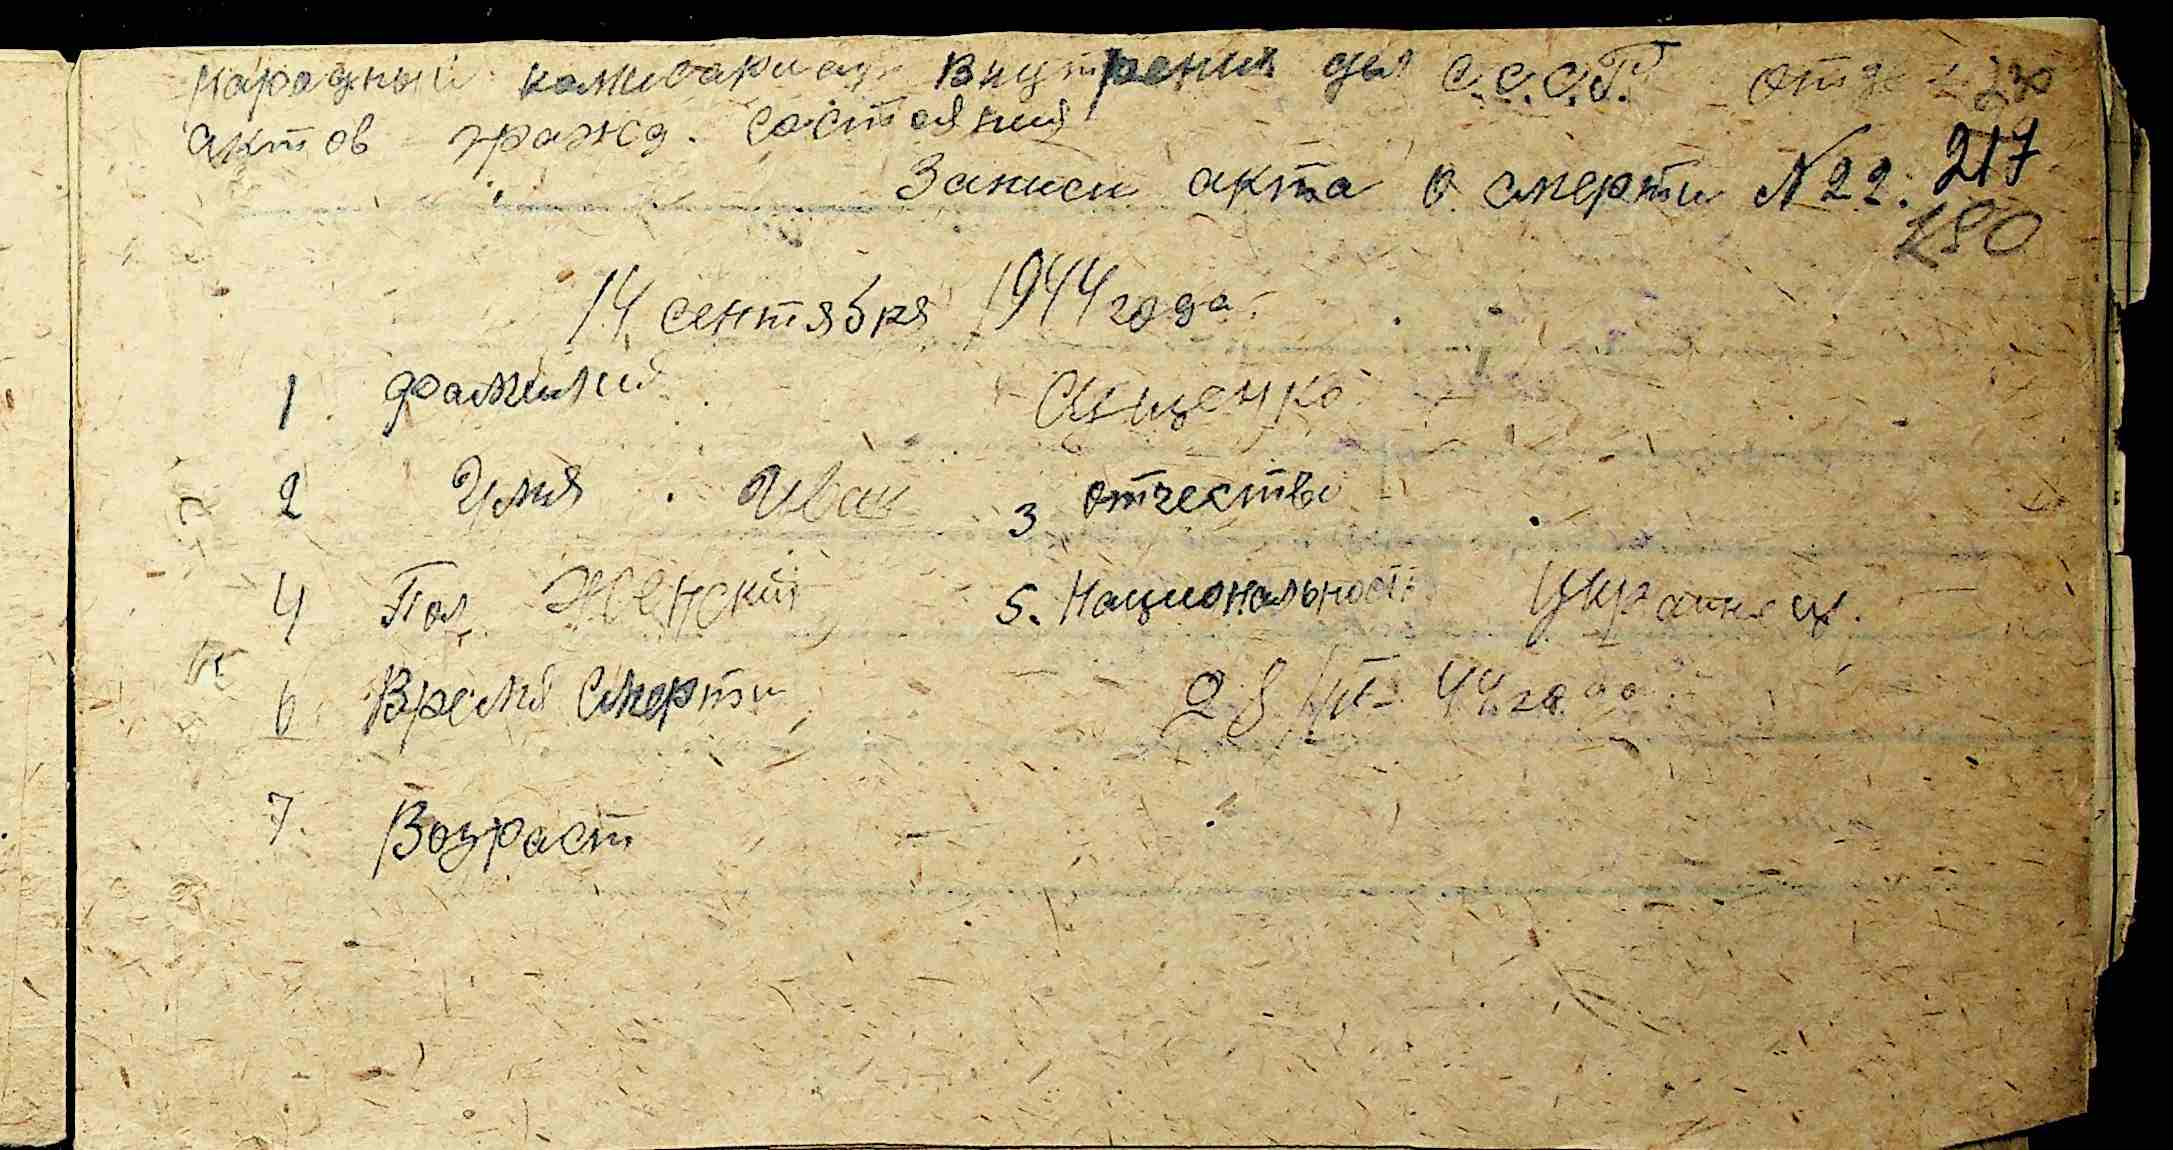 Народный комисариат Внутрених дел С.С.С.Р. отдел
актов гражд. состояния
Записи акта о смерти N 22. 217
180
14 сентября 1944 года.
1. Фамилия Ищенко
2 Имя Иван 3 отчество
4 Пол Женский 5. Национальность Украинец.
6 Время смерти 28/VI-44 года
7. Возраст -